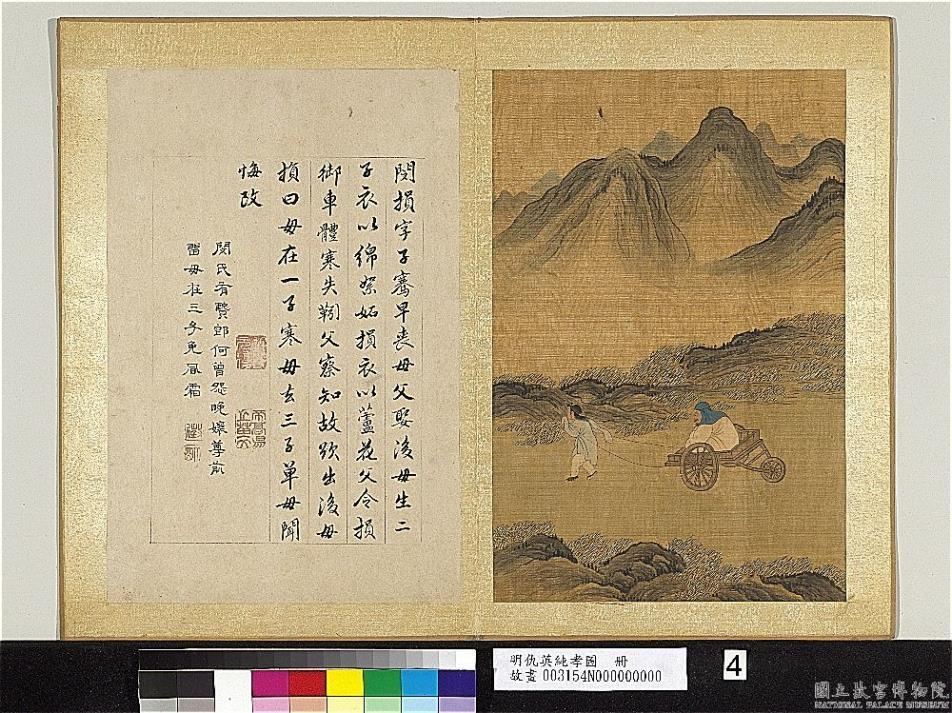 閔損字子騫早喪母父娶後母生二
子衣以綿絮妬損衣以蘆花父令損
御車體寒失靷父察知故欲出後母
損曰母在一子寒母去三子單母聞
悔改
閔氏有賢郎何曾怨晚孃尊前
留母在三子免風霜
明仇英純孝圖 冊
故畫003154N000000000
4
國立故宮博物院
NATIONAL PALACE MUSEUM